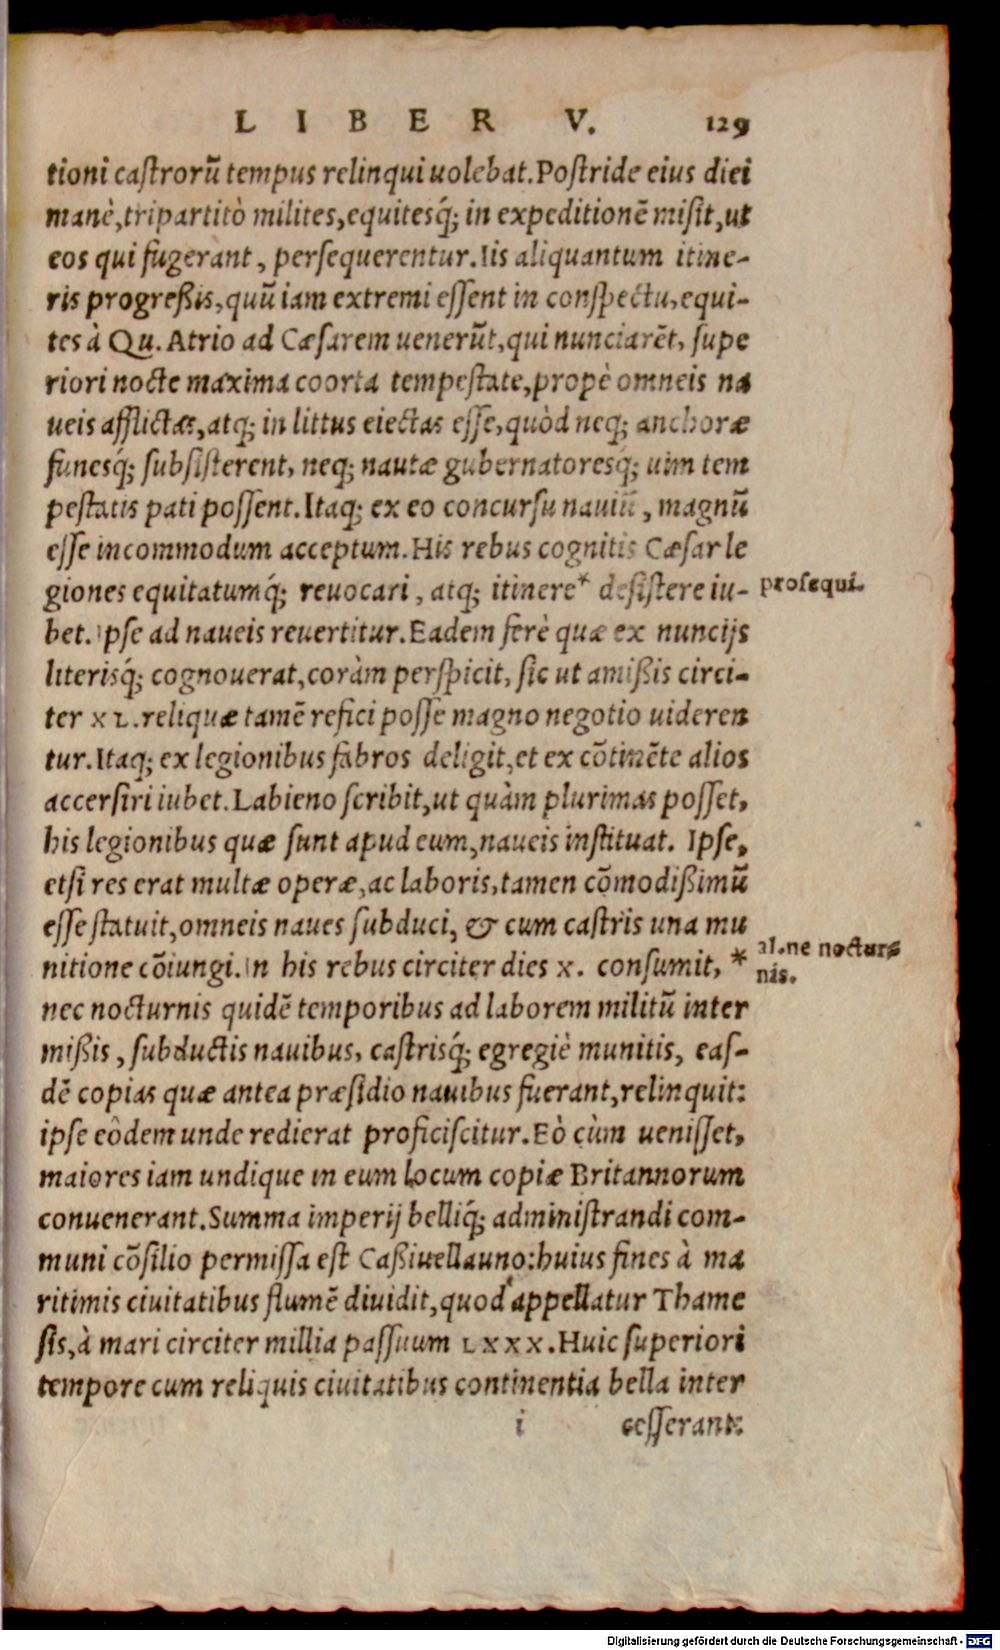 LIBER V. 129
tioni caſtrorū tempus relinqui uolebat. Poſtride eius diei
manè, tripartitò milites, equitesq́; in expeditionē miſit, ut
eos qui fugerant, perſequerentur. Iis aliquantum itine-
ris progreßis, quū iam extremi eſſent in conſpectu, equi-
tes à Qu. Atrio ad Cæſarem uenerūt, qui nunciarēt, ſupe
riori nocte maxima coorta tempeſtate, propè omneis na
ueis afflictas, atq; in littus eiectas eſſe, quòd neq; anchoræ
funesq́; ſubſiſterent, neq; nautæ gubernatoresq́; uim tem
peſtatis pati poſſent. Itaq; ex eo concurſu nauiū, magnū
eſſe incommodum acceptum. His rebus cognitis Cæſar le
giones equitatumq́; reuocari, atq; itinere* deſiſtere iu-
proſequi.
bet. Ipſe ad naueis reuertitur. Eadem ferè quæ ex nuncijs
literisq́; cognouerat, coràm perſpicit, ſic ut amißis circi-
ter XL. reliquæ tamē refici poſſe magno negotio uideren
tur. Itaq; ex legionibus fabros deligit, et ex cōtinēte alios
accerſiri iubet. Labieno ſcribit, ut quàm plurimas poſſet,
his legionibus quæ ſunt apud eum, naueis inſtituat. Ipſe,
etſi res erat multæ operæ, ac laboris, tamen cōmodißimū
eſſe ſtatuit, omneis naues ſubduci, & cum caſtris una mu
nitione cōiungi. In his rebus circiter dies X. conſumit, *
al. ne noctur-
nis.
nec nocturnis quidē temporibus ad laborem militū inter
mißis, ſubductis nauibus, caſtrisq́; egregiè munitis, eaſ-
dē copias quæ antea præſidio nauibus fuerant, relinquit:
ipſe eôdem unde redierat proficiſcitur. Eò cùm ueniſſet,
maiores iam undique in eum locum copiæ Britannorum
conuenerant. Summa imperij belliq́; adminiſtrandi com-
muni cōſilio permiſſa eſt Caßiuellauno: huius fines à ma
ritimis ciuitatibus flumē diuidit, quod appellatur Thame
ſis, à mari circiter millia paſſuum LXXX. Huic ſuperiori
tempore cum reliquis ciuitatibus continentia bella inter
i ceſſerant.
Digitalisierung gefördert durch die Deutsche Forschungsgemeinschaft - DFG